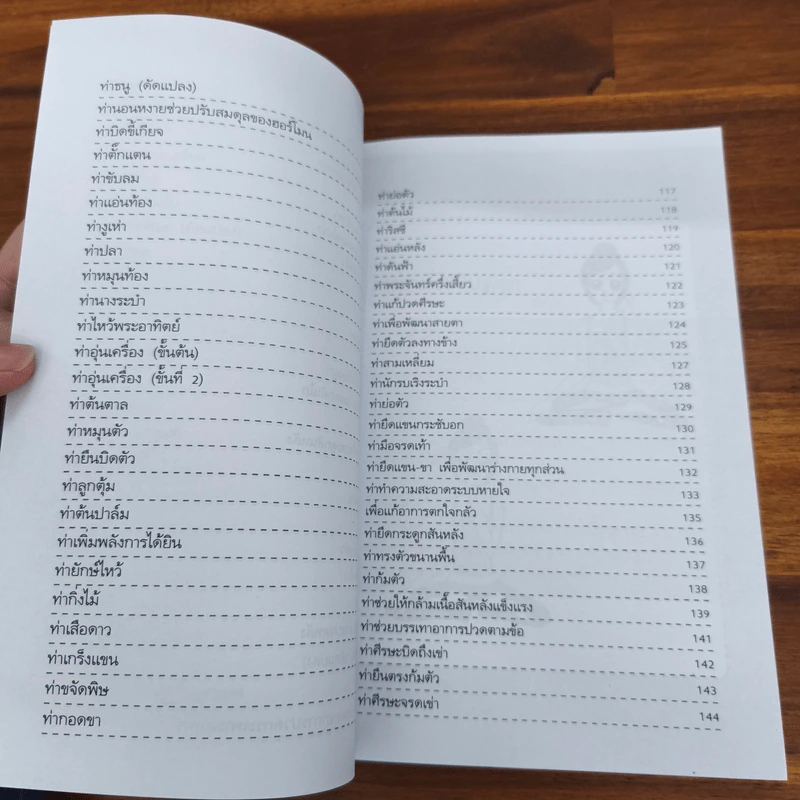 ท่าธนู (ดัดแปลง)
ท่านอนหงายช่วยปรับสมดุลของฮอร์โมน
ท่าบิดขี้เกียจ
ท่าตั๊กแตน
ท่าขับลม
ท่าแอ่นท้อง
ท่างูเห่า
ท่าปลา
ท่าหมุนท้อง
ท่านางระบำ
ท่าไหว้พระอาทิตย์
ท่าอุ่นเครื่อง (ขั้นต้น)
ท่าอุ่นเครื่อง (ขั้นที่ 2)
ท่าต้นตาล
ท่าหมุนตัว
ท่ายืนบิดตัว
ท่าลูกตุ้ม
ท่าต้นปาล์ม
ท่าเพิ่มพลังการได้ยิน
ท่ายักษ์ไหว้
ท่ากิ่งไม้
ท่าเสือดาว
ท่าเกร็งแขน
ท่าขจัดพิษ
ท่ากอดขา
ท่าย่อตัว 117
ท่าต้นไม้ 118
ท่าริสชี 119
ท่าแอ่นหลัง 120
ท่าดันฟ้า 121
ท่าพระจันทร์ครึ่งเสี้ยว 122
ท่าแก้ปวดศีรษะ 123
ท่าเพื่อพัฒนาสายตา 124
ท่ายืดตัวลงทางข้าง 125
ท่าสามเหลี่ยม 127
ท่านักรบเริงระบำ 128
ท่าย่อตัว 129
ท่ายืดแขนกระชับอก 130
ท่ามือจรดเท้า 131
ท่ายืดแขน-ขา เพื่อพัฒนาร่างกายทุกส่วน 132
ท่าทำความสะอาดระบบหายใจ 133
เพื่อแก้อาการตกใจกลัว 135
ท่ายืดกระดูกสันหลัง 136
ท่าทรงตัวขนานพื้น 137
ท่าก้มตัว 138
ท่าช่วยให้กล้ามเนื้อสันหลังแข็งแรง 139
ท่าช่วยบรรเทาอาการปวดตามข้อ 141
ท่าศีรษะบิดถึงเข่า 142
ท่ายืนตรงก้มตัว 143
ท่าศีรษะจรดเข่า 144